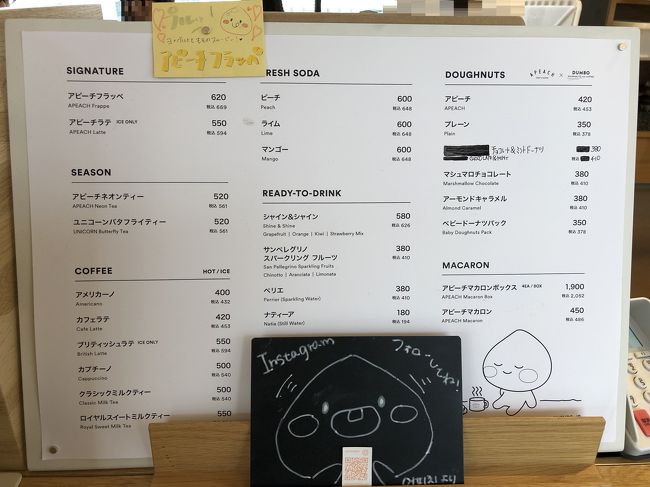 ヨーグルトともものスムージー!
アピーチフラッペ
SIGNATURE
アピーチフラッペ 620
APEACH Frappe 税込 669
アピーチラテ ICE ONLY 550
APEACH Latte 税込 594
SEASON
アピーチネオンティー 520
APEACH Neon Tea 税込 561
ユニコーンバタフライティー 520
UNICORN Butterfly Tea 税込 561
COFFEE HOT / ICE
アメリカーノ 400
Americano 税込 432
カフェラテ 420
Cafe Latte 税込 453
ブリティッシュラテ ICE ONLY 550
British Latte 税込 594
カプチーノ 500
Cappuccino 税込 540
クラシックミルクティー 500
Classic Milk Tea 税込 540
ロイヤルスイートミルクティー 550
Royal Sweet Milk Tea
FRESH SODA
ピーチ 600
Peach 税込 648
ライム 600
Lime 税込 648
マンゴー 600
Mango 税込 648
READY-TO-DRINK
シャイン&シャイン 580
Shine & Shine 税込 626
Grapefruit | Orange | Kiwi | Strawberry Mix
サンペレグリノ 380
スパークリング フルーツ 税込 410
San Pellegrino Sparkling Fruits
Chinotto | Aranciata | Limonata
ペリエ 380
Perrier (Sparkling Water) 税込 410
ナティーア 180
Natia (Still Water) 税込 194
DOUGHNUTS APEACH × DUMBO
アピーチ 420
APEACH 税込 453
プレーン 350
Plain 税込 378
チョコレート&ミントドーナツ 380
410
マシュマロチョコレート 380
Marshmallow Chocolate 税込 410
アーモンドキャラメル 380
Almond Caramel 税込 410
ベビードーナツパック 350
Baby Doughnuts Pack 税込 378
MACARON
アピーチマカロンボックス 4EA / BOX 1,900
APEACH Macaron Box 税込 2,052
アピーチマカロン 450
APEACH Macaron 税込 486
Instagram
フォローしてね!
アピーチより